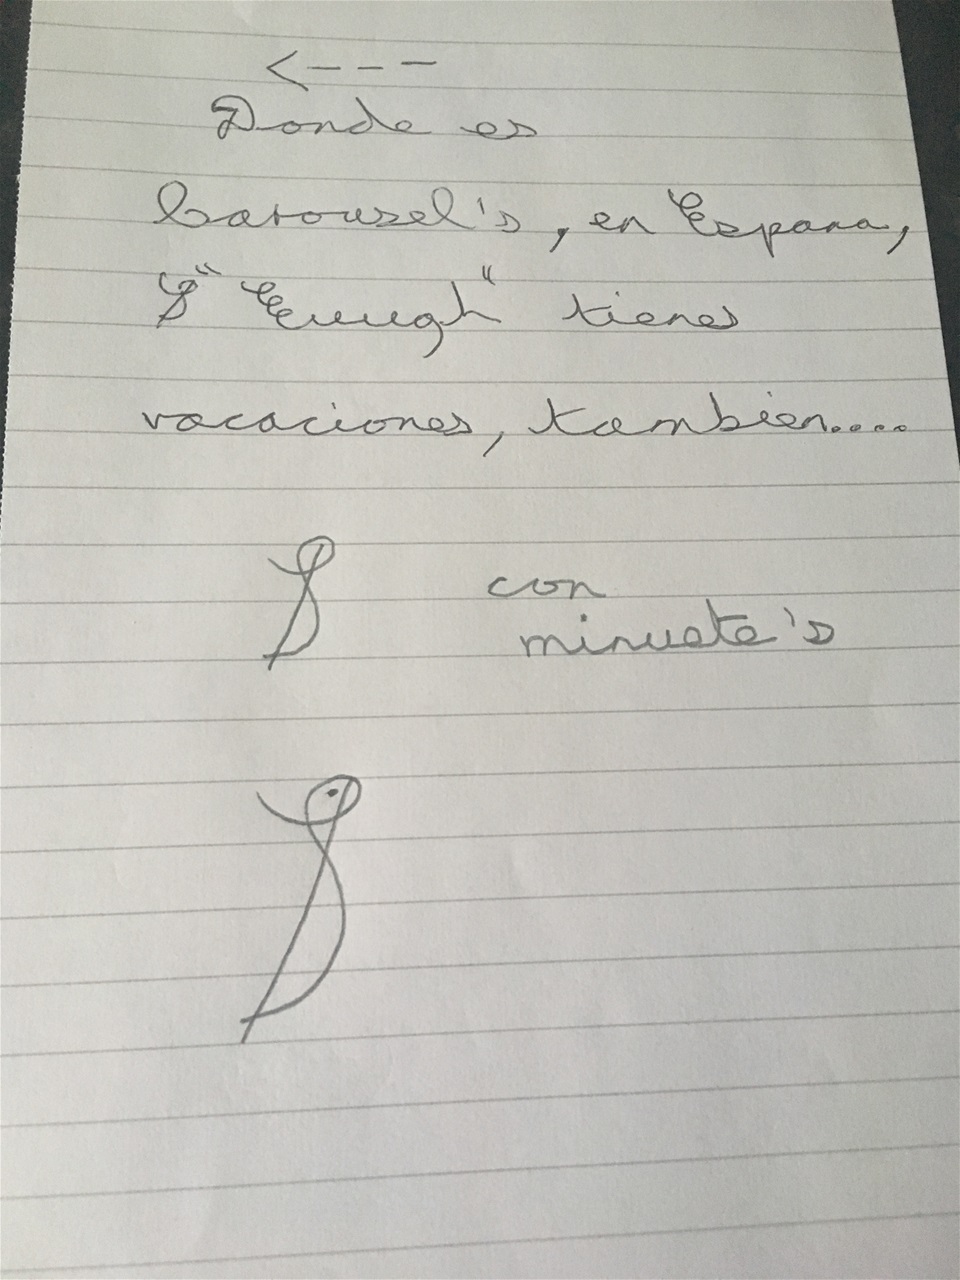 <---
Donde es
Carousel's, en Espana,
& "Eeuugh" tienes
vacaciones, tambien....
& con
minuete's
&